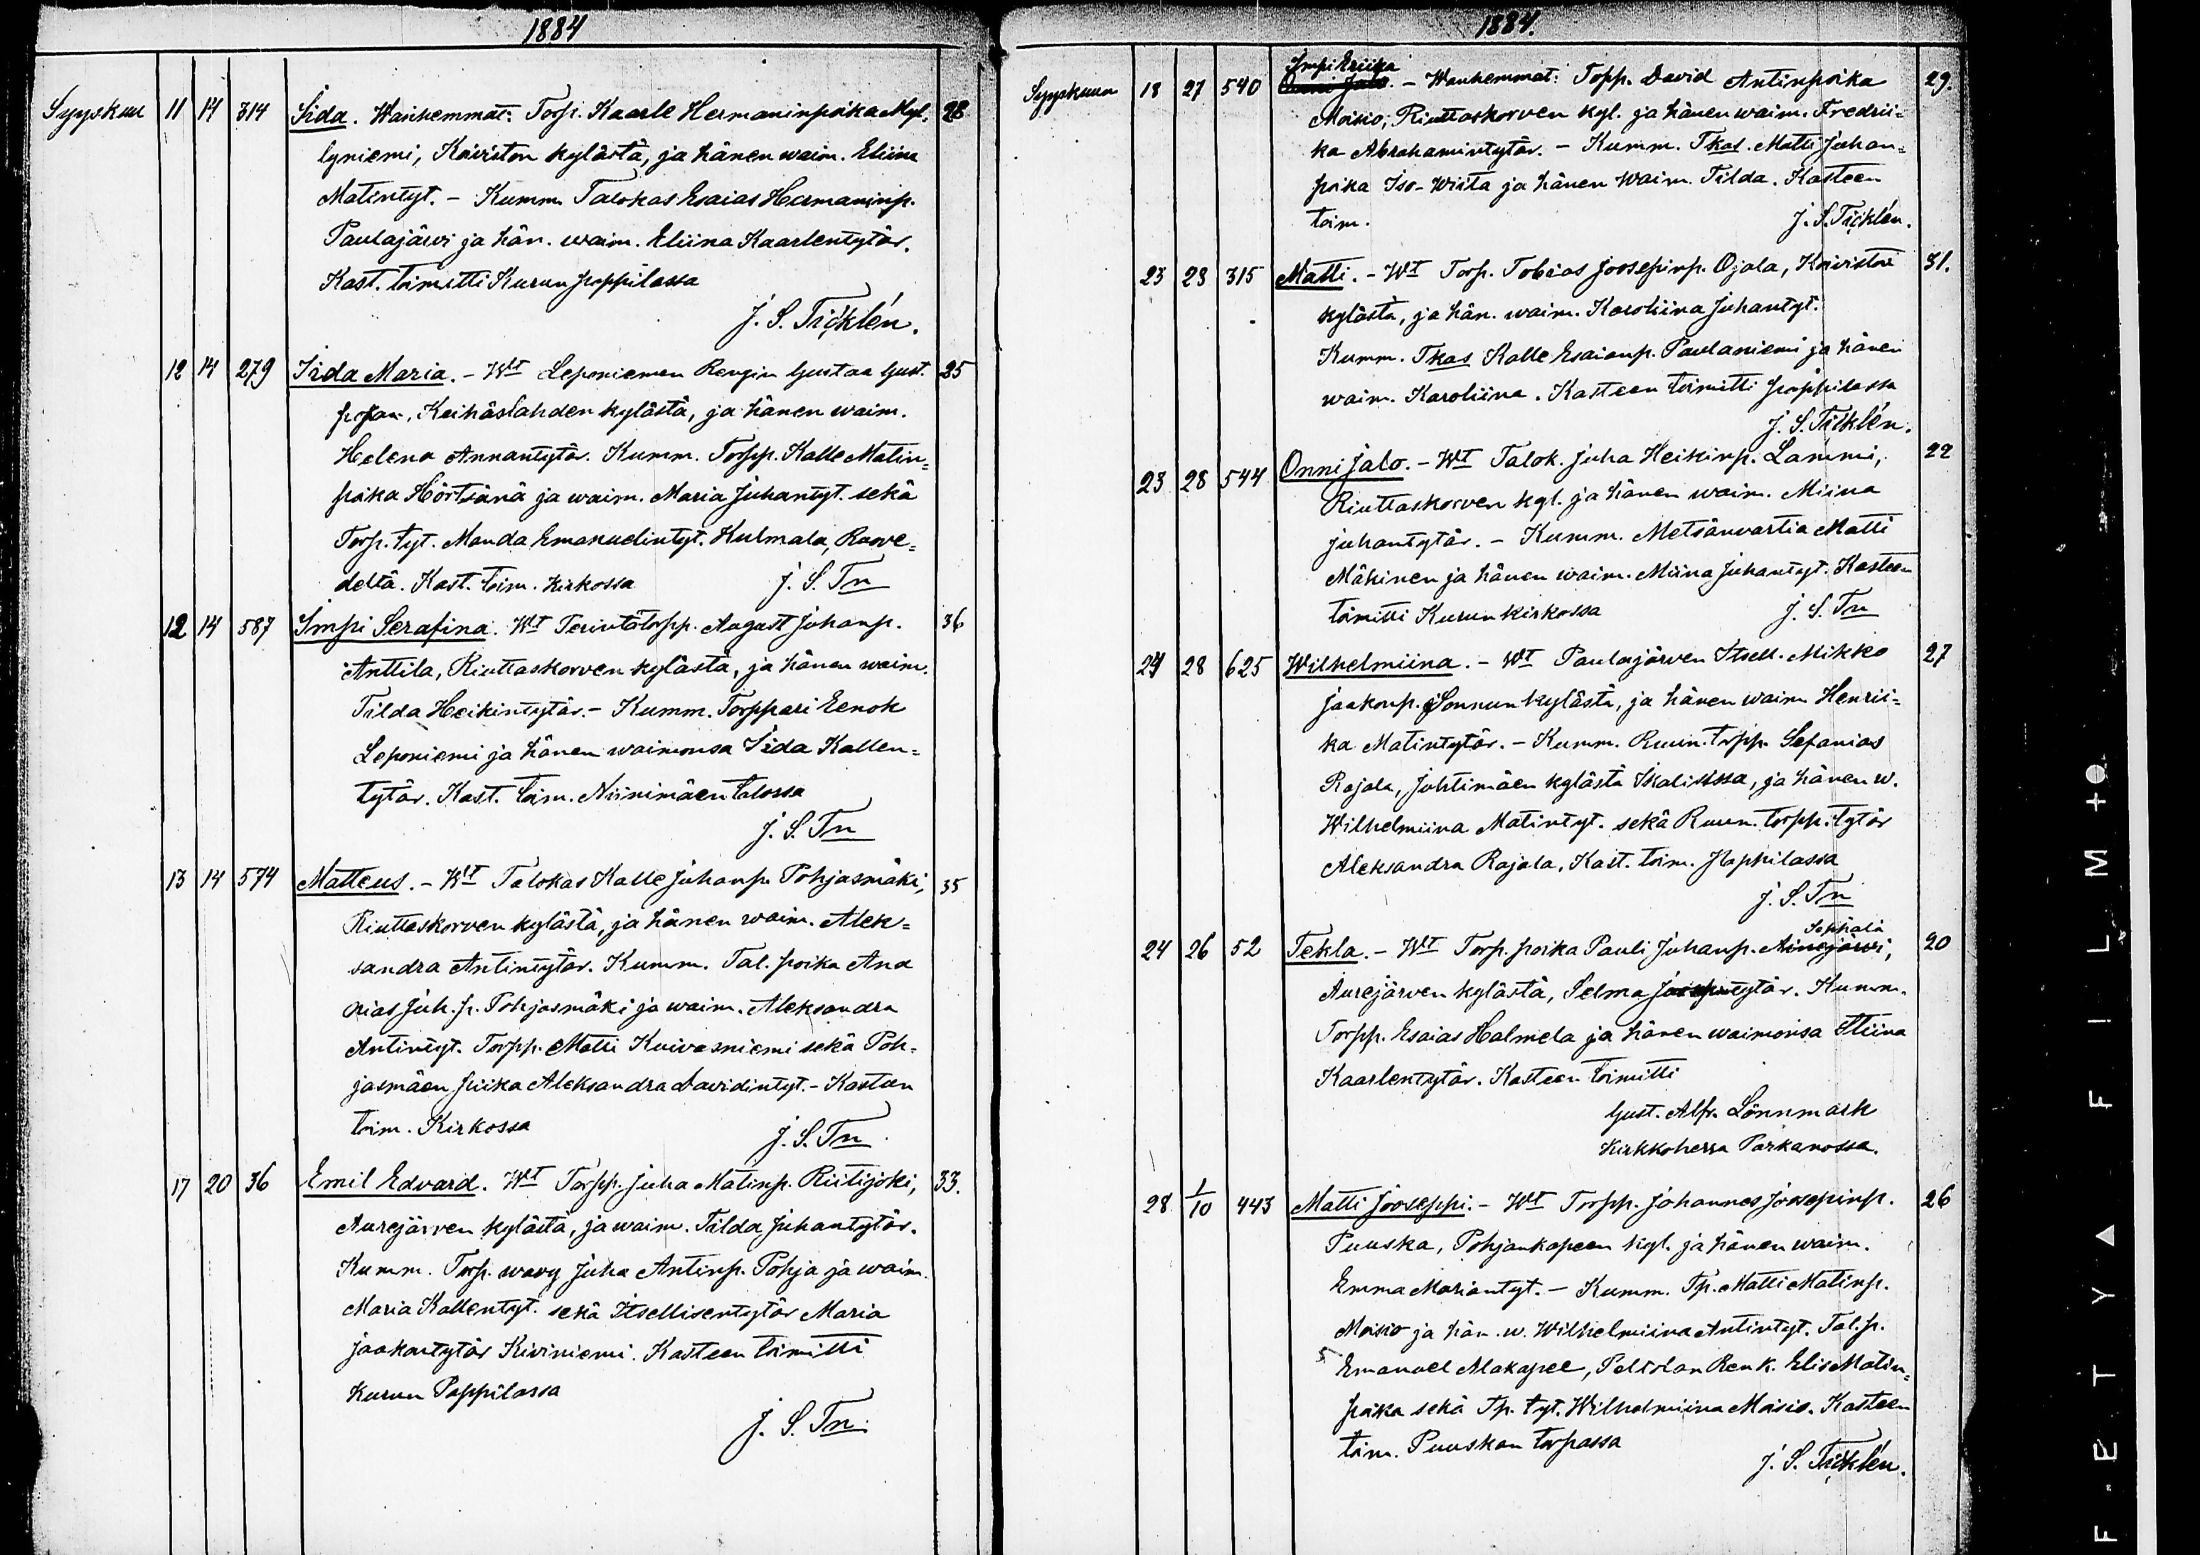 1884
Syyskuu 11 14 314 Iida. Wanhemmat: Torp. Kaarle Hermaninpoika Myl= 28
lyniemi, Koiviston kylästä, ja hänen waim. Eliina
Matintyt. – Kumm. Talokas Esaias Hermaninp.
Paulajärwi ja hän. waim. Eliina Kaarlentytär.
Kast. toimitti Kurun pappilassa
J. S. Ticklén.
12 14 279 Iida Maria. – Wt Leponiemen Rengin Gustaa Gust. 25
pojan, Keihäslahden kylästä, ja hänen waim.
Helena Annantytär. Kumm. Torpp. Kalle Matin=
poika Hörtsänä ja waim. Maria Juhantyt. sekä
Torp. tyt. Manda Emanuelintyt. Kulmala, Roove=
deltä. Kast. toim. Kirkossa J. S. Tn
12 14 587 Impi Serafina. Wt Terintötorpp. August Juhanp. 36
Anttila, Riuttaskorven kylästä, ja hänen waim.
Tilda Heikintytär. – Kumm. Torppari Eenok
Leponiemi ja hänen waimonsa Iida Kallen=
tytär. Kast. toim. Niinimäen talossa
J. S. Tn
13 14 574 Matteus. – Wt Talokas Kalle Juhanp. Pohjasmäki, 35
Riuttaskorven kylästä, ja hänen waim. Alek=
sandra Antintytär. Kumm. Tal. poika Ana
nias Juh. p. Pohjasmäki ja waim. Aleksandra
Antintyt. Torpp. Matti Kuivasniemi sekä Poh=
jasmäen piika Aleksandra Davidintyt. – Kasteen
toim. Kirkossa J. S. Tn.
17 20 36 Emil Edvard. Wt Torpp. Juha Matinp. Riitijoki, 33.
Aurejärven kylästä, ja waim. Tilda Juhantytär.
Kumm. Torp. wavy Juha Antinp. Pohja ja waim.
Maria Kallentyt. sekä Itsellisentytär Maria
Jaakontytär Kiviniemi. Kasteen toimitti
Kurun Pappilassa
J. S. Tn.
1884.
Impi Eriika
Syyskuun 18 27 540 Onni Jalo. – Wanhemmat: Topp. David Antinpoika 29.
Moisio, Riuttaskorven kyl. ja hänen waim. Fredrii=
ka Abrahamintytär. – Kumm. Tkas. Matti Juhan=
poika Iso-Wisita ja hänen waim. Tilda. Kasteen
toim. J. S. Ticklén.
23 28 315 Matti. – Wt Torp. Tobias Joosepinp. Ojala, Koiviston 31.
kylästä, ja hän. waim. Karoliina Juhantyt.
Kumm. Tkas Kalle Esaianp. Paulaniemi ja hänen
waim. Karoliina. Kasteen toimitti pappilassa
J. S. Ticklén.
23 28 544 Onni Jalo. – Wt Talok. Juha Heikinp. Lammi, 22
Riuttaskorven kyl. ja hänen waim. Miina
Juhantytär. – Kumm. Metsänvartia Matti
Mäkinen ja hänen waim. Miina Juhantyt. Kasteen
toimitti Kurun kirkossa J. S. Tn
24 28 625 Wilhelmiina. – Wt Paulajärven Itsell. Mikko 27
Jaakonp. Sonnun kylästä, ja hänen waim Henrii=
ka Matintytär. – Kumm. Ruun. torpp. Sefanias
Rajala, Juhtimäen kylästä Ikalissa, ja hänen w.
Wilhelmiina Matintyt. sekä Ruun. torpp. tytär
Aleksandra Rajala, Kast. toim. Pappilassa
J. S. Tn
Seppälä
24 26 52 Tekla. – Wt Torp. poika Pauli Juhanp. Ainejärwi, 20
Aurejärven kylästä, Selma Joosepintytär. Kumm.
Torpp. Esaias Halmela ja hänen waimonsa Stiina
Kaarlentytär. Kasteen toimitti
Gust. Alfr. Lönnmark
Kirkkoherra Parkanossa.
28 1/10 443 Matti Jooseppi. – Wt Torpp. Johannes Joosepinp. 26
Puuska, Pohjankapeen kyl. ja hänen waim.
Emma Mariantyt. – Kumm. Tp. Matti Matinp.
Moisio ja hän. w. Wilhelmiina Antintyt. Tal. p.
Emanoel Alakapee, Peltolan Renk. Elis Matin=
poika sekä Tp. tyt. Wilhelmiina Moisio. Kasteen
toim. Puuskan torpassa
J. S. Ticklén.
FILM
FETYA